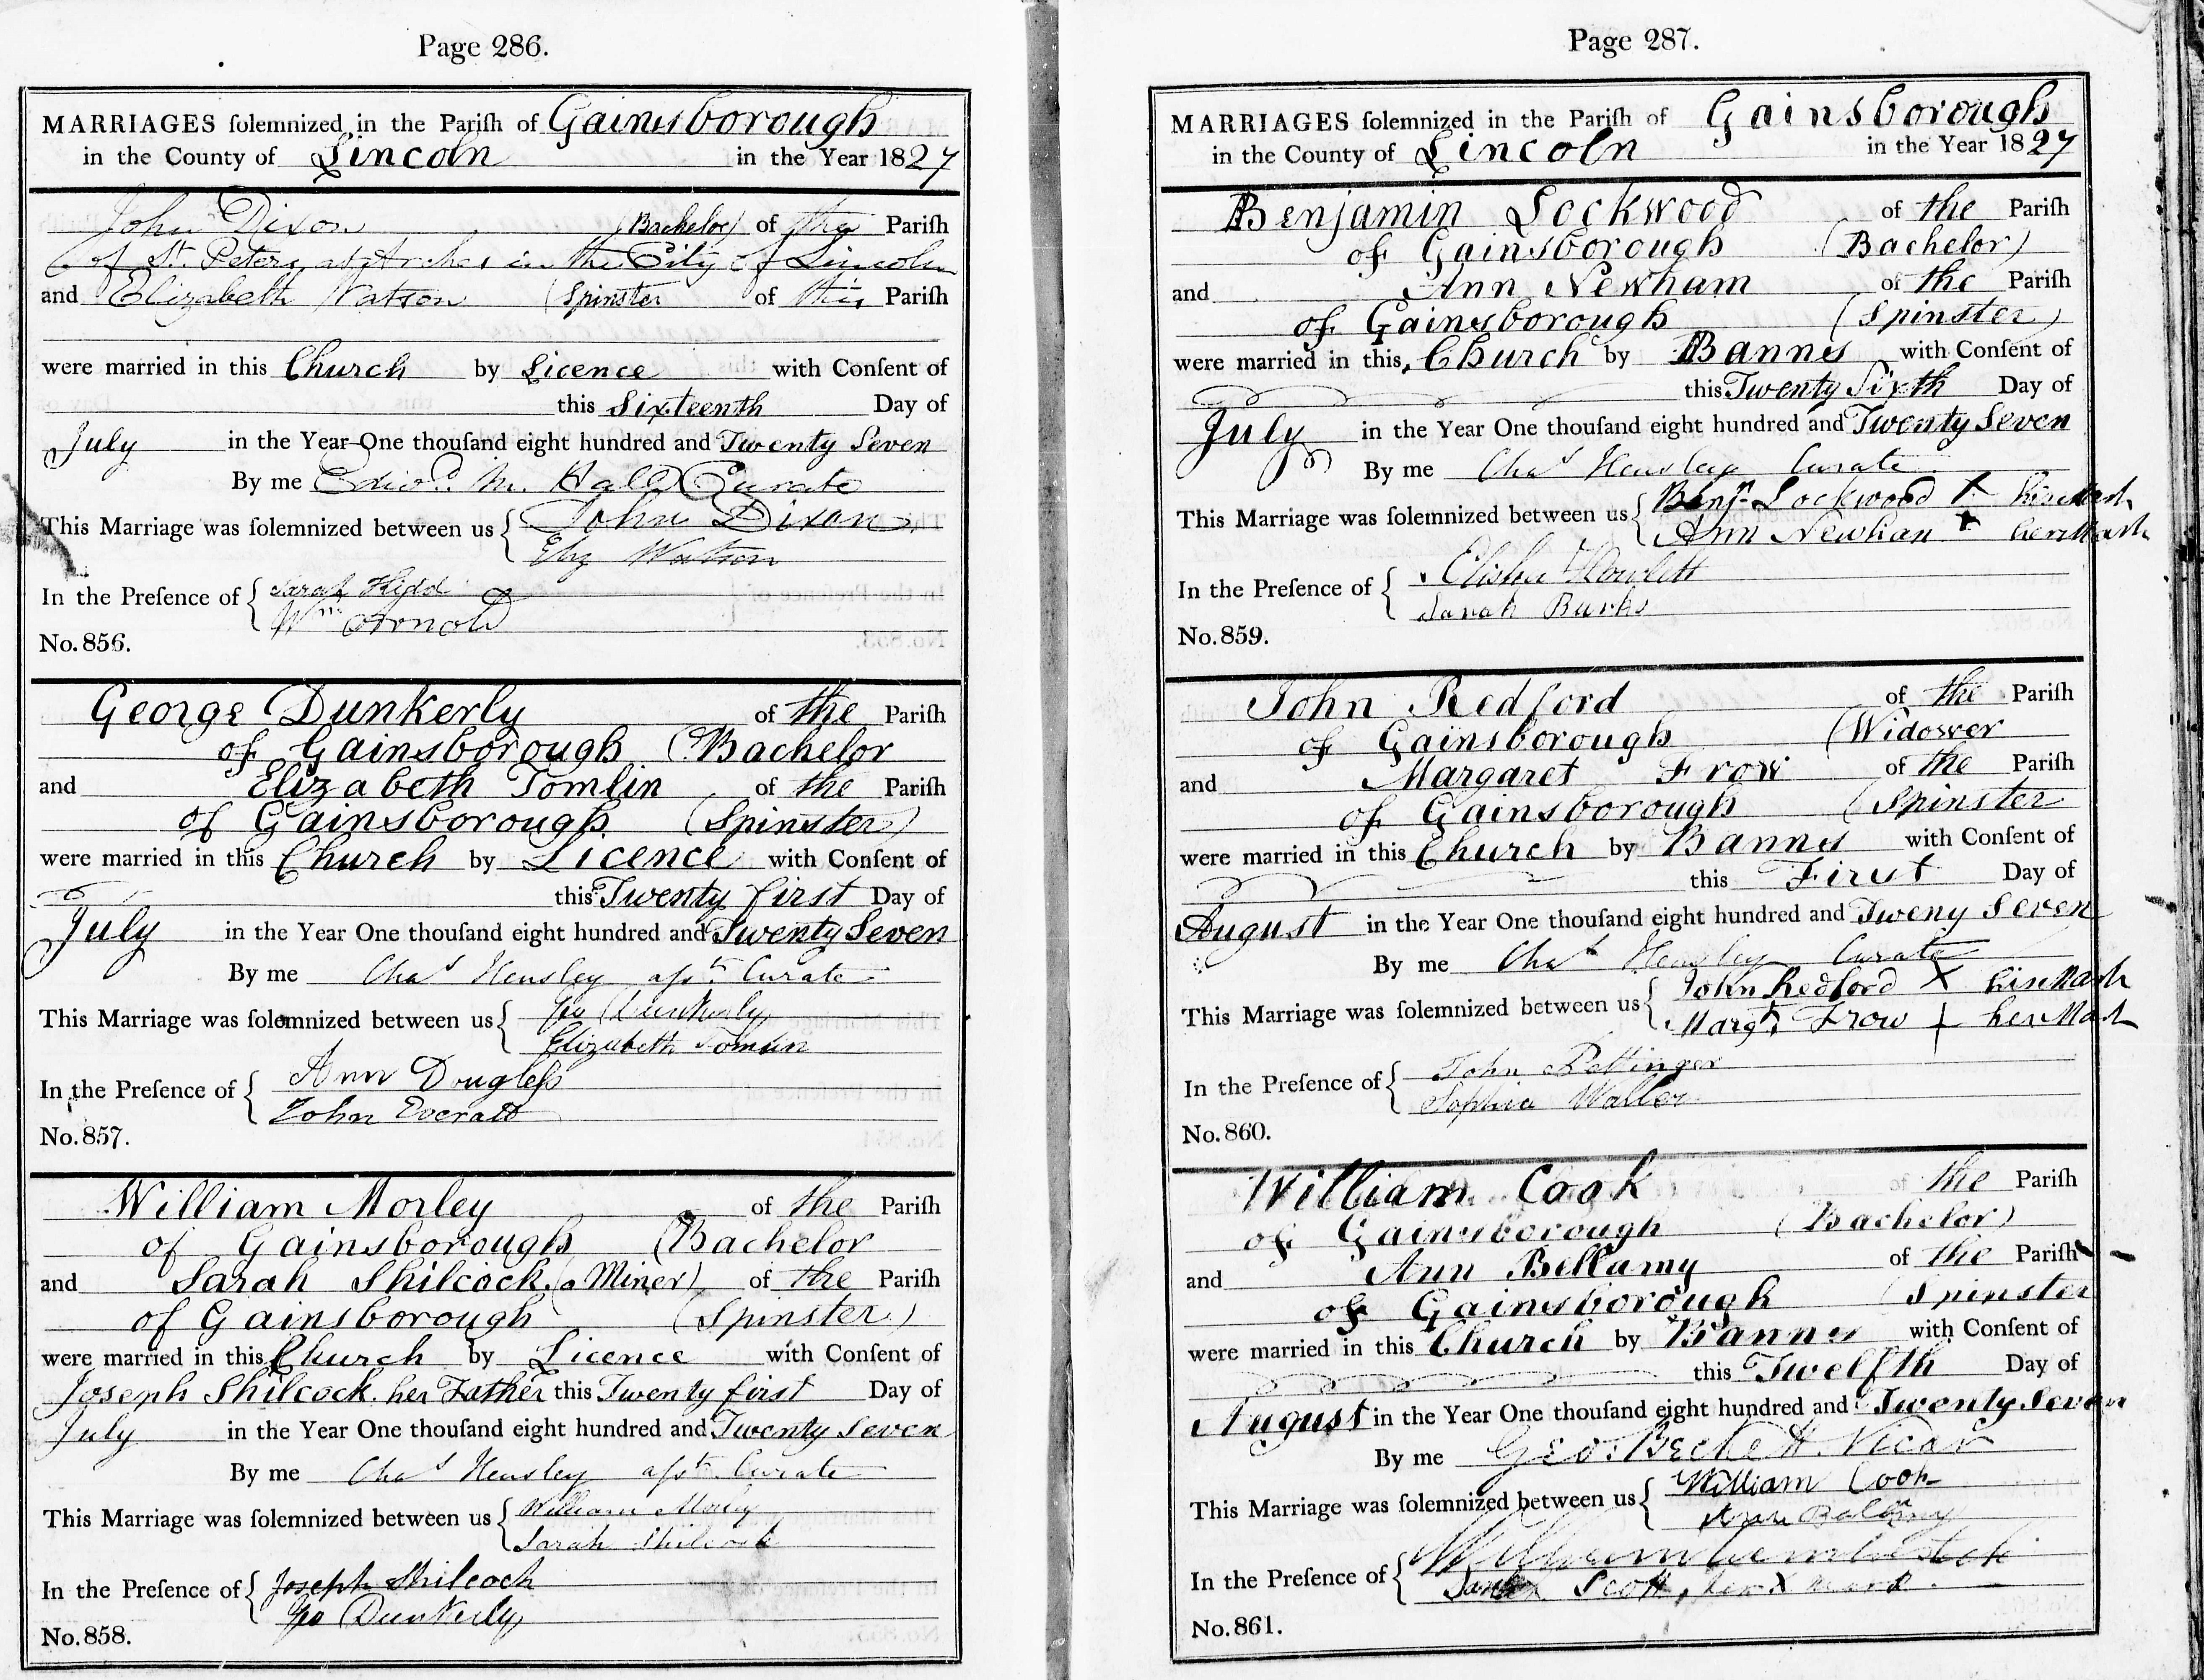 Page 286.
MARRIAGES ſolemnized in the Pariſh of Gainsborough
in the County of Lincoln in the Year 1827
John Dixon (Bachelor) of the Pariſh
of St. Peters at Arches in the City of Lincoln
and Elizabeth Watson (Spinster of this Pariſh
were married in this Church by Licence with Conſent of
this Sixteenth Day of
July in the Year One thouſand eight hundred and Twenty Seven
By me Edwd. M. Hall Curate
This Marriage was ſolemnized between us { John Dixon
Eliz Watson
In the Preſence of { Sarah Kidd
Wm Arnold
No. 856.
George Dunkerly of the Pariſh
of Gainsborough (Bachelor
and Elizabeth Tomlin of the Pariſh
of Gainsborough (Spinster)
were married in this Church by Licence with Conſent of
this Twenty first Day of
July in the Year One thouſand eight hundred and Twenty Seven
By me Chas Hensley asst. Curate
This Marriage was ſolemnized between us { Geo Dunkerly
Elizabeth Tomlin
In the Preſence of { Ann Dougleſs
John Everatt
No. 857.
William Morley of the Pariſh
of Gainsborough (Bachelor
and Sarah Shilcock (a Miner) of the Pariſh
of Gainsborough (Spinster)
were married in this Church by Licence with Conſent of
Joseph Shilcock her Father this Twenty first Day of
July in the Year One thouſand eight hundred and Twenty Seven
By me Chas Hensley asst. Curate
This Marriage was ſolemnized between us { William Morley
Sarah Shilcock
In the Preſence of { Joseph Shilcock
Geo Dunkerly
No. 858.
Page 287.
MARRIAGES ſolemnized in the Pariſh of Gainsborough
in the County of Lincoln in the Year 1827
Benjamin Lockwood of the Pariſh
of Gainsborough (Bachelor)
and Ann Newham of the Pariſh
of Gainsborough (Spinster)
were married in this Church by Banns with Conſent of
this Twenty Sixth Day of
July in the Year One thouſand eight hundred and Twenty Seven
By me Chas Hensley Curate
This Marriage was ſolemnized between us { Benjn Lockwood X his Mark
Ann Newham X her Mark
In the Preſence of { Elisha Howlett
Sarah Burks
No. 859.
John Redford of the Pariſh
of Gainsborough (Widower
and Margaret Frow of the Pariſh
of Gainsborough (Spinster
were married in this Church by Banns with Conſent of
this First Day of
August in the Year One thouſand eight hundred and Tweny Seven
By me Chas Hensley Curate
This Marriage was ſolemnized between us { John Redford X his Mark
Margt Frow + her Mark
In the Preſence of { John Pettinger
Sophia Waller
No. 860.
William Cook the Pariſh
of Gainsborough (Bachelor)
and Ann Bellamy of the Pariſh
of Gainsborough (Spinster
were married in this Church by Banns with Conſent of
this Twelfth Day of
August in the Year One thouſand eight hundred and Twenty Seven
By me Geo. Beckett Vicar
This Marriage was ſolemnized between us { William Cook
Ann
In the Preſence of { William
Scott, her X mark.
No. 861.